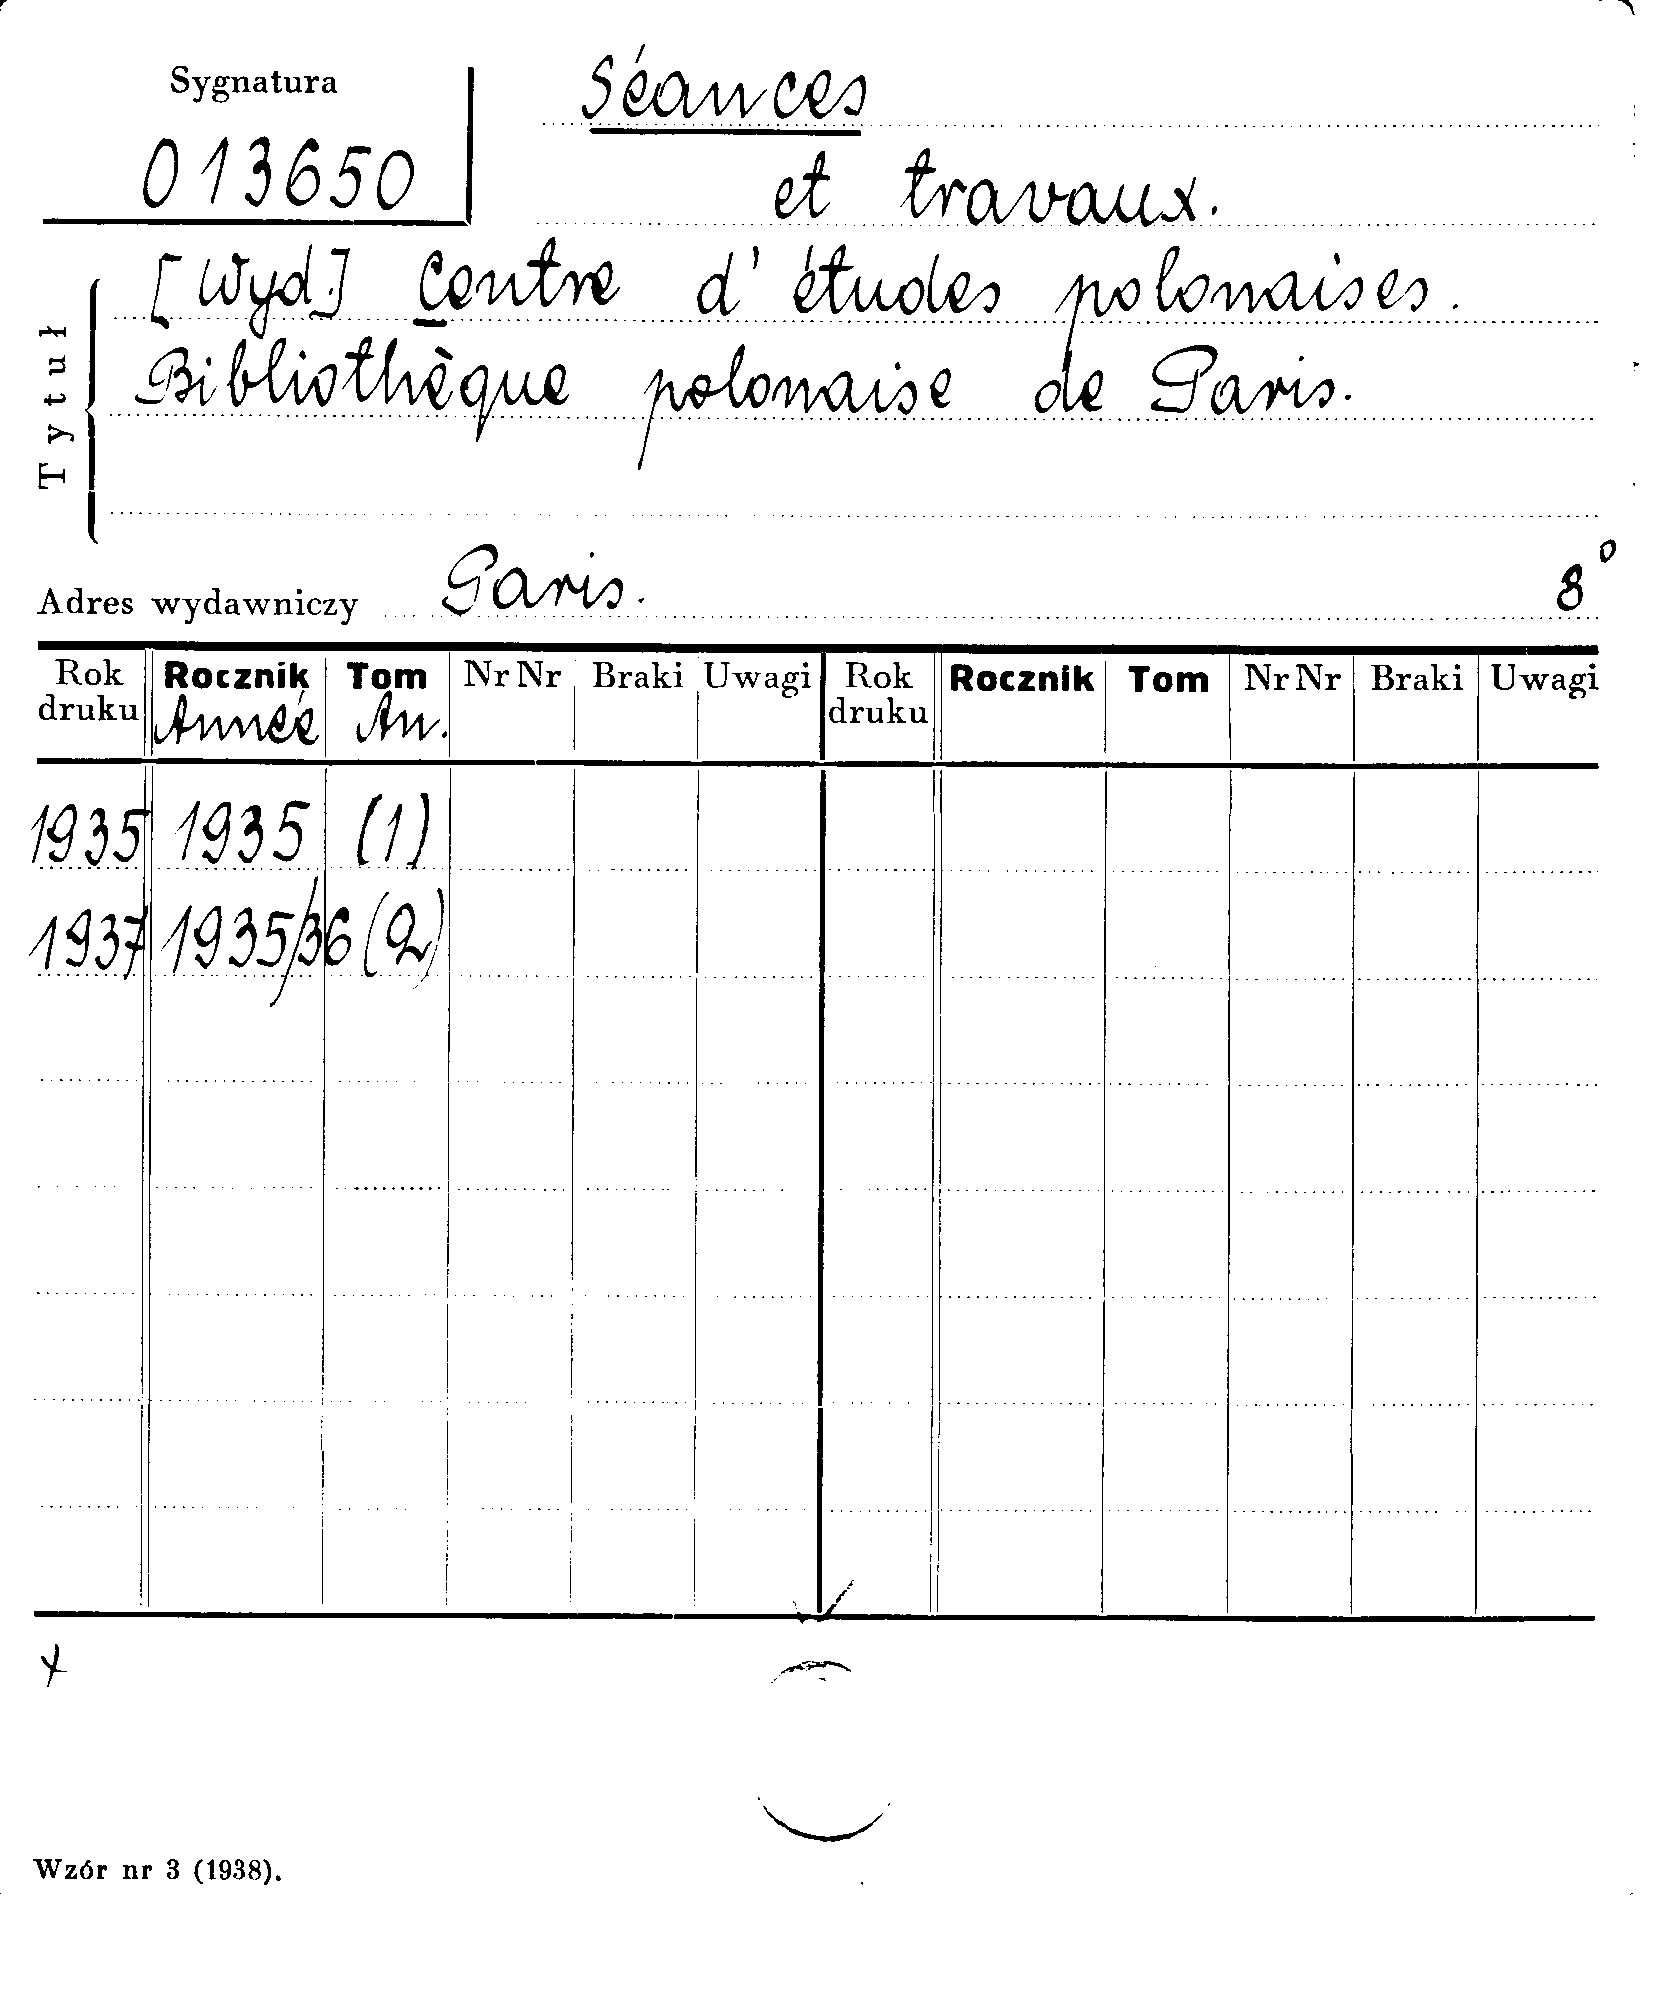 Sygnatura
013650
Séances
et travaux.
Tytuł
[Wyd.] Centre d'études polonaises.
Bibliothèque polonaise de Paris.
Adres wydawniczy Paris. 8°
Rok druku Rocznik Tom Nr Nr Braki Uwagi Rok druku Rocznik Tom Nr Nr Braki Uwagi
Année An.
1935 1935 (1)
1937 1935/36 (2)
x
Wzór nr 3 (1938).